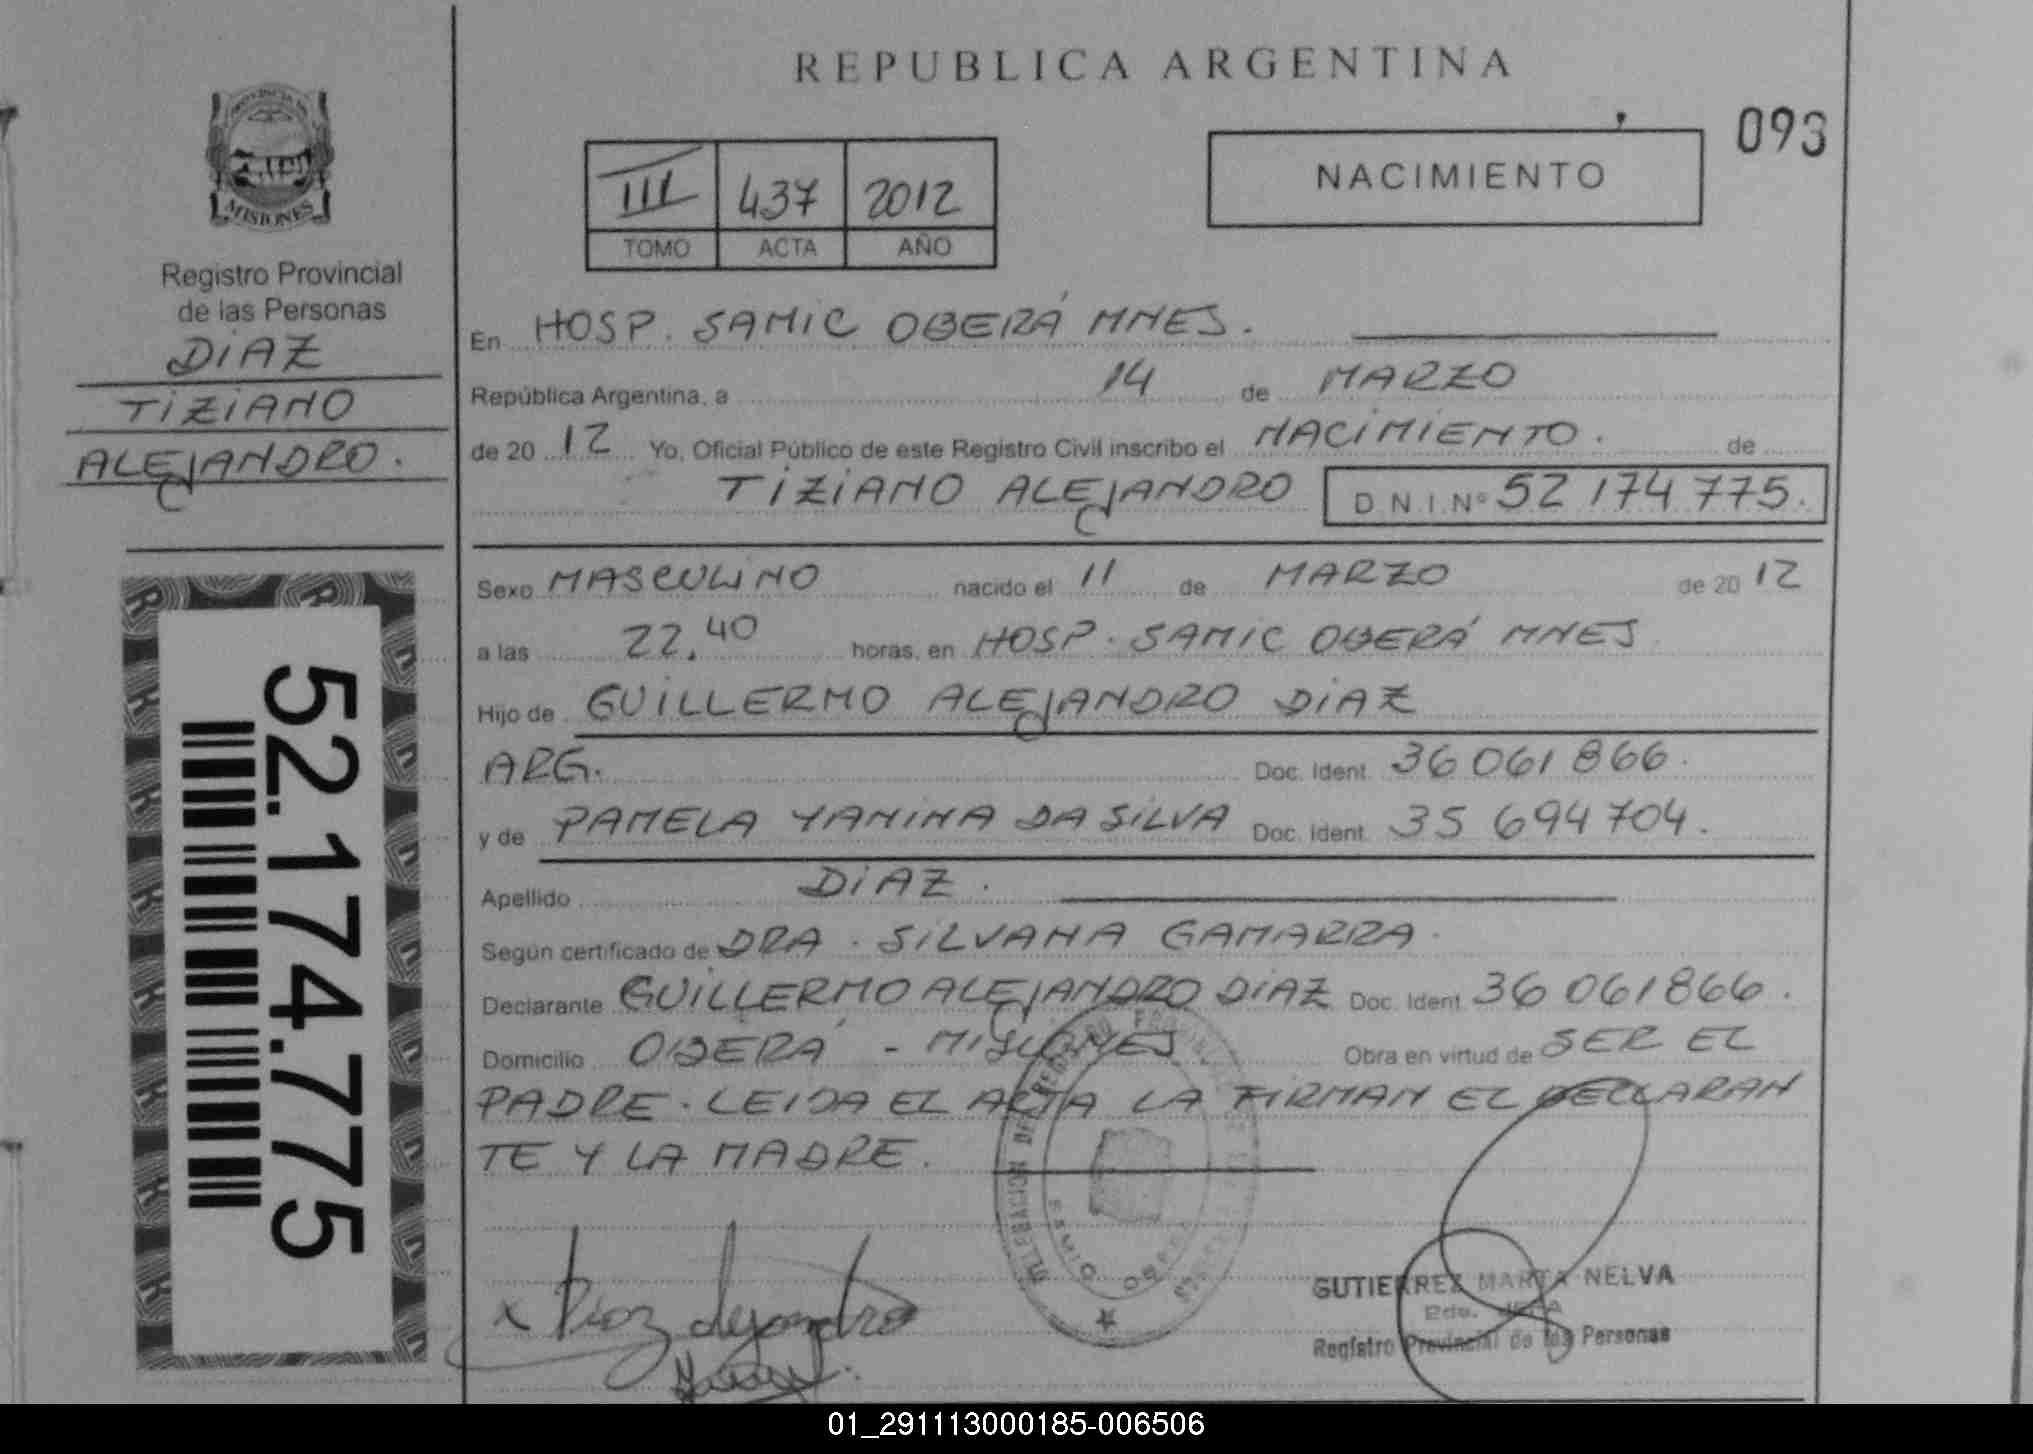 REPUBLICA ARGENTINA
093
PROVINCIA DE
MISIONES
Registro Provincial
de las Personas
DIAZ
TIZIANO
ALEJANDRO.
52.174.775
III 437 2012
TOMO ACTA AÑO
NACIMIENTO
En HOSP. SAMIC OBERÁ MNES.
República Argentina, a 14 de MARZO
de 20 12 Yo, Oficial Público de este Registro Civil inscribo el NACIMIENTO. de
TIZIANO ALEJANDRO D.N.I.Nº 52 174 775.
Sexo MASCULINO nacido el 11 de MARZO de 20 12
a las 22.40 horas, en HOSP. SAMIC OBERÁ MNES
Hijo de GUILLERMO ALEJANDRO DIAZ
ARG. Doc. Ident. 36 061 866.
y de PAMELA YANINA DA SILVA Doc. Ident. 35 694 704.
Apellido DIAZ.
Según certificado de DRA. SILVANA GAMARRA.
Declarante GUILLERMO ALEJANDRO DIAZ Doc. Ident. 36 061866.
Domicilio OBERÁ - MISIONES Obra en virtud de SER EL
PADRE. LEIDA EL ACTA LA FIRMAN EL DECLARAN
TE Y LA MADRE.
x Diaz Alejandro
GUTIERREZ MARTA NELVA
Registro Provincial de las Personas
01_291113000185-006506